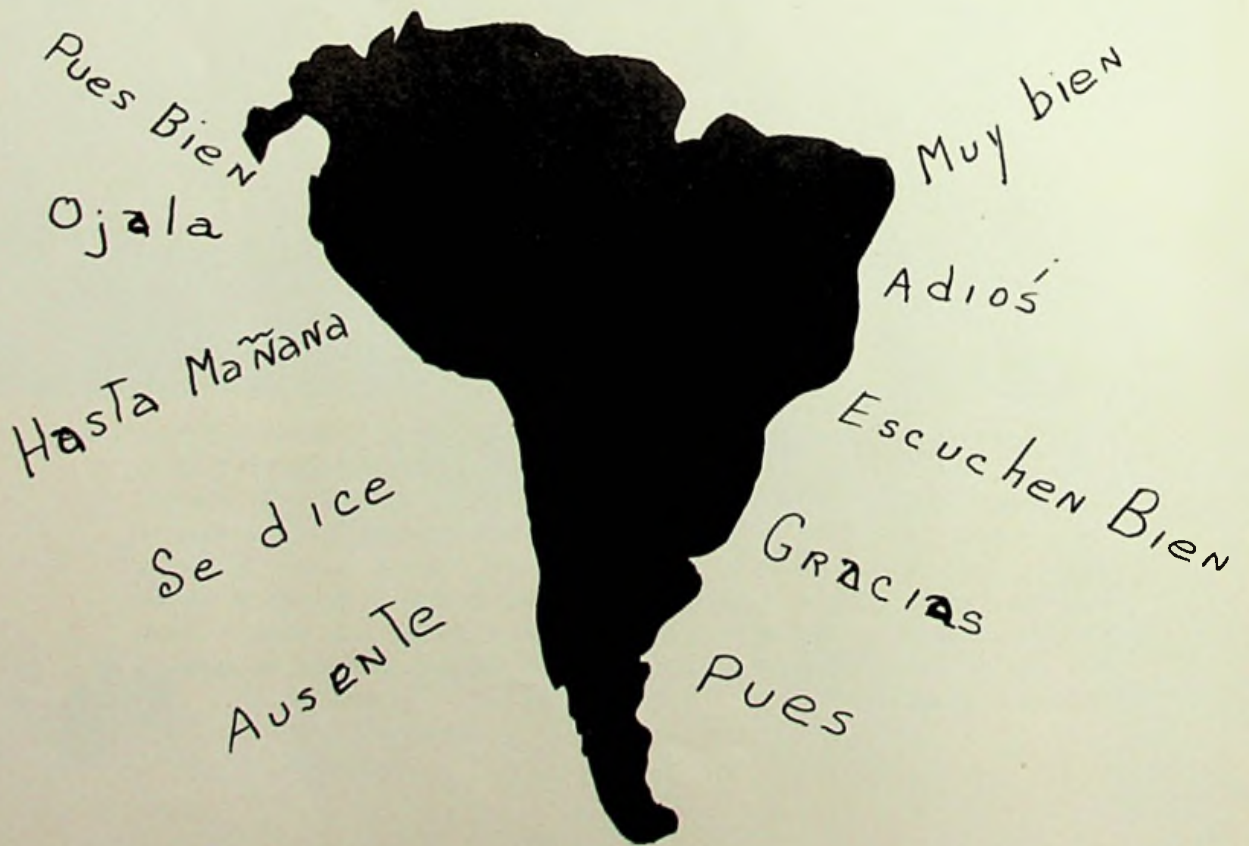 Pues Bien
Ojala
Hasta Mañana
Se dice
Ausente
Muy bien
Adiós
Escuchen Bien
Gracias
Pues